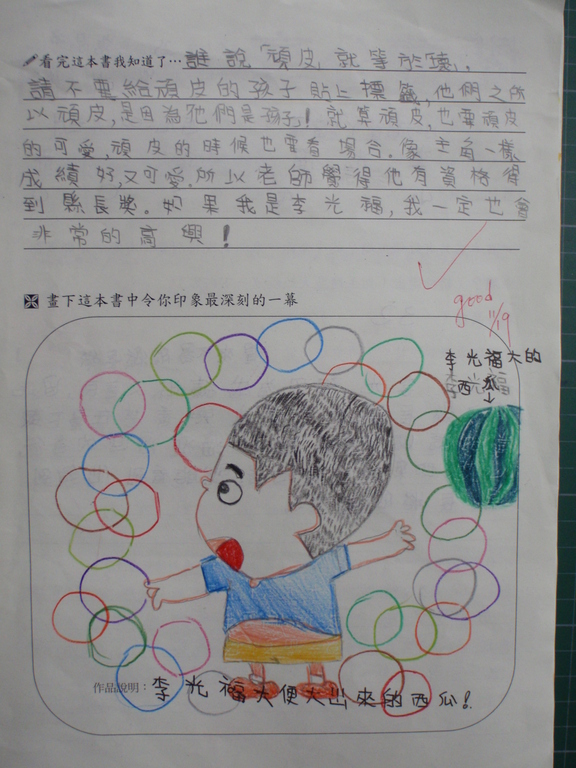 看完這本書我知道了…誰說「頑皮」就等於壞」.
請不要給頑皮的孩子貼上標籤,他們之所
以頑皮,是因為他們是孩子!就算頑皮,也要頑皮
的可愛,頑皮的時候也要看場合.像主角一樣
成績好,又可愛.所以老師覺得他有資格得
到縣長獎.如果我是李光福,我一定也會
非常的高興!
good
11/19
畫下這本書中令你印象最深刻的一幕
李光福大的
西瓜
作品說明:李光福大便大出來的西瓜!